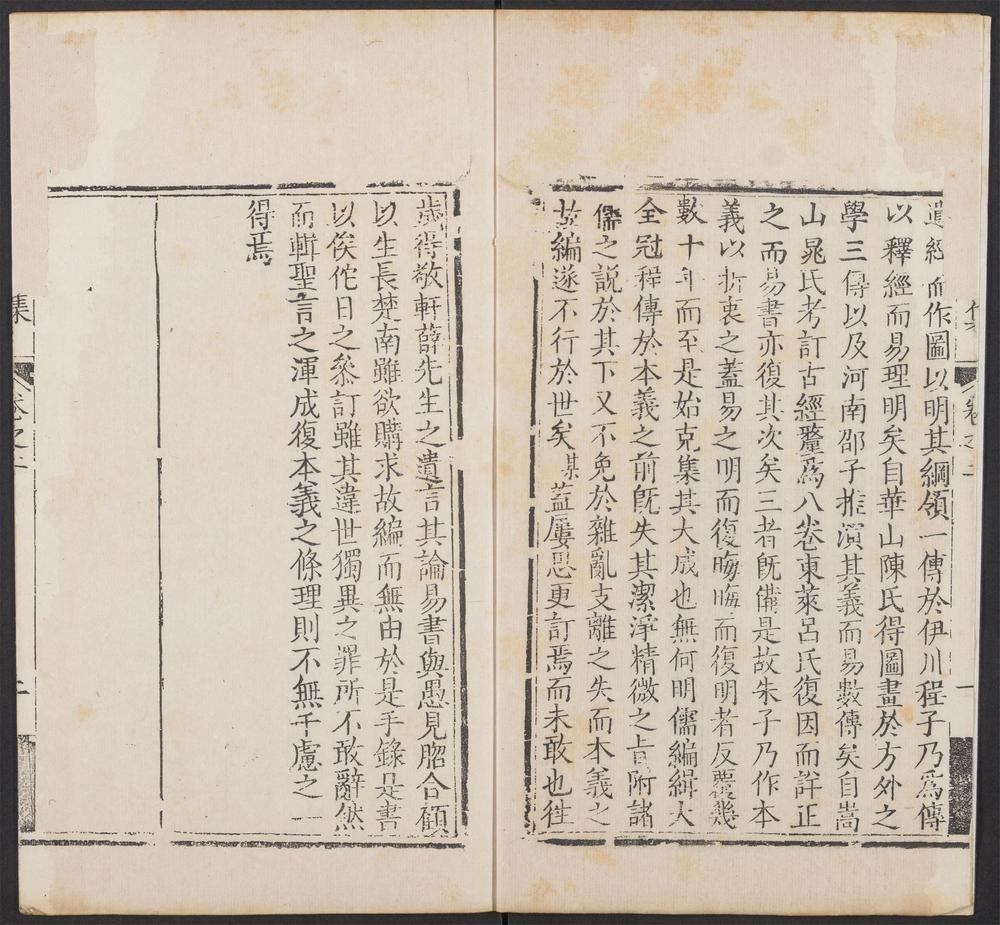 遺經而作圖以明其綱領一傳於伊川程子乃爲傳
以釋經而易理明矣自華山陳氏得圖畫於方外之
學三傳以及河南邵子推演其義而易數傳矣自嵩
山晁氏考訂古經釐爲八卷東萊呂氏復因而詳正
之而易書亦復其次矣三者旣備是故朱子乃作本
義以折衷之蓋易之明而復晦晦而復明者反覆幾
數十年而至是始克集其大成也無何明儒編緝大
全冠程傳於本義之前旣失其潔淨精微之旨附諸
儒之說於其下又不免於雜亂支離之失而本義之
故編遂不行於世矣某蓋屢思更訂焉而未敢也往
歲得敬軒薛先生之遺言其論易書與愚見脗合顧
以生長楚南雖欲購求故編而無由於是手錄是書
以俟佗日之叅訂雖其違世獨異之罪所不敢辭然
而輯聖言之渾成復本義之條理則不無千慮之一
得焉
集
卷之二
卷之二
一
二